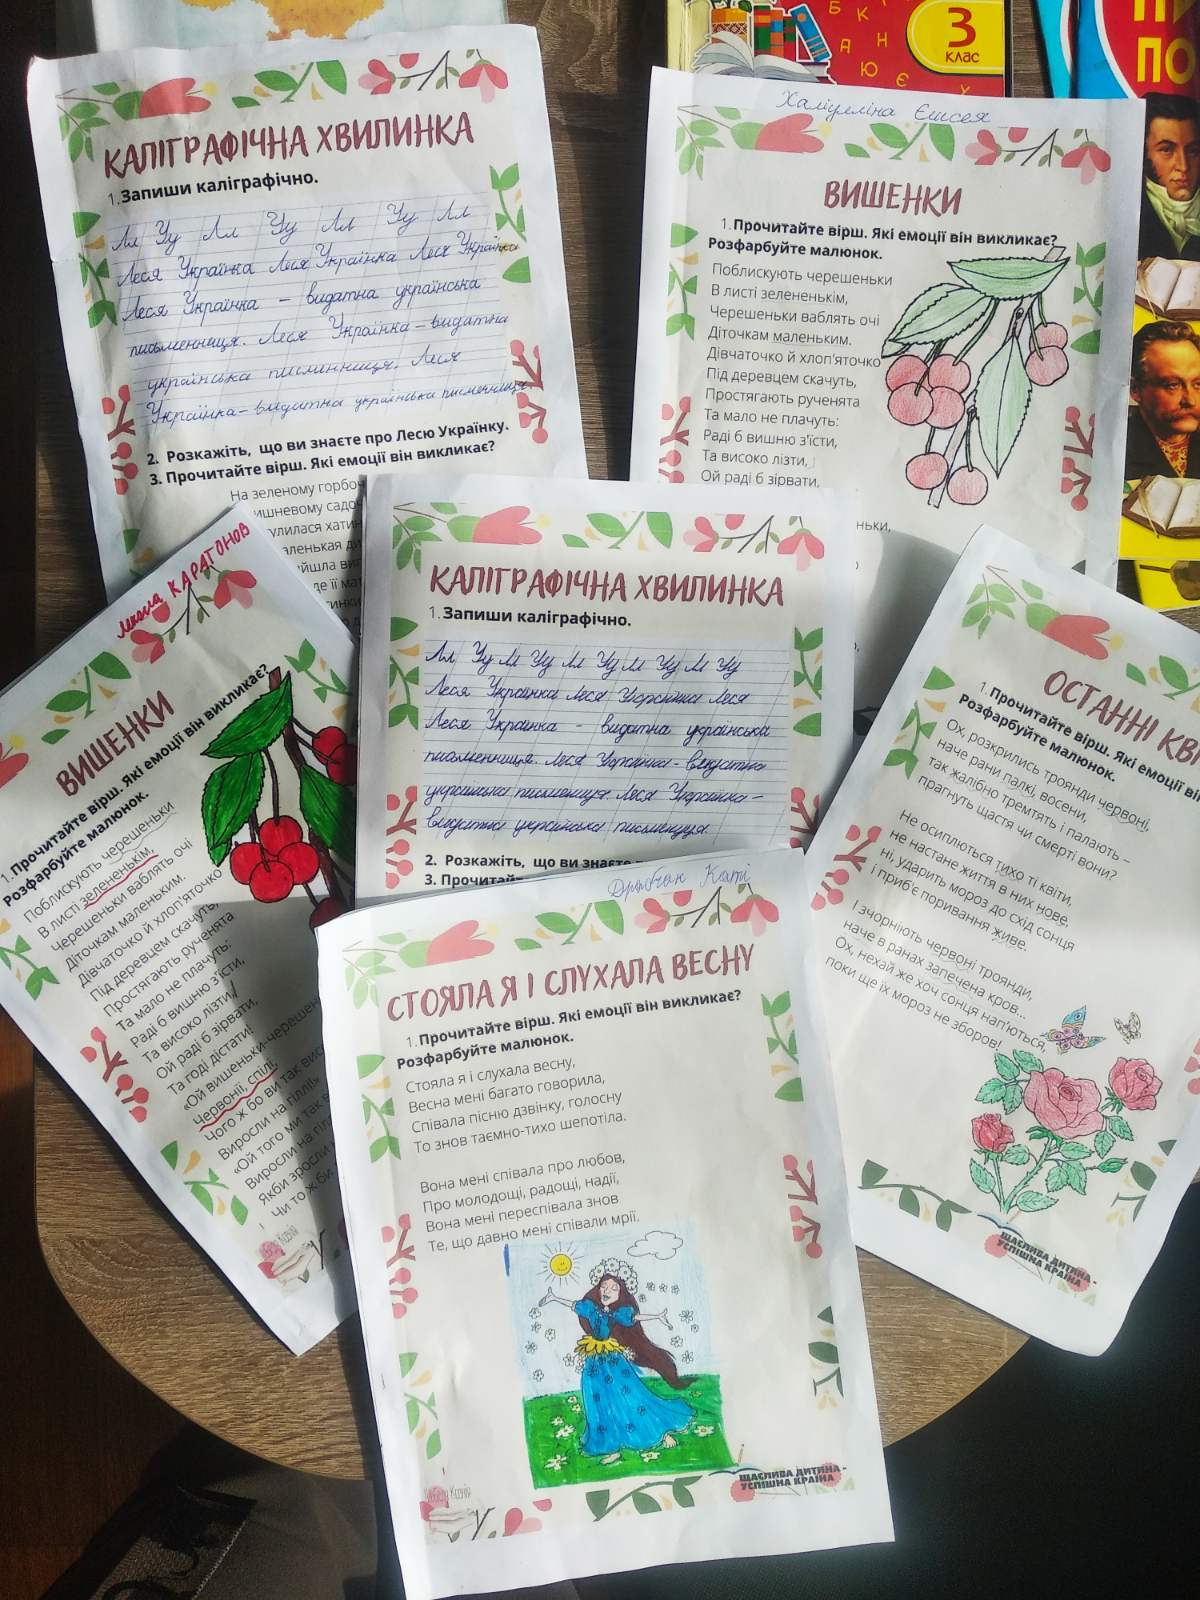 БКІ
АНЮЄ
3
КЛАС
ПО
КАЛІГРАФІЧНА ХВИЛИНКА
1. Запиши каліграфічно.
Лл Уу Лл Уу Лл Уу Лл
Леся Українка Леся Українка Леся Українка
Леся Українка – видатна українська
письменниця. Леся Українка – видатна
українська писминниця. Леся
Українка – видатна українська письменниця
2. Розкажіть, що ви знаєте про Лесю Українку.
3. Прочитайте вірш. Які емоції він викликає?
На зеленому горбоч
ишневому садоч
улилася хатин
аленькая ди
йшла ви
де її ма
Єлисея
ВИШЕНКИ
1. Прочитайте вірш. Які емоції він викликає?
Розфарбуйте малюнок.
Поблискують черешеньки
В листі зелененькім,
Черешеньки ваблять очі
Діточкам маленьким.
Дівчаточко й хлоп'яточко
Під деревцем скачуть,
Простягають рученята
Та мало не плачуть:
Раді б вишню з'їсти,
Та високо лізти,
Ой раді б зірвати,
ньки,
КАРАГОНОВ
ВИШЕНКИ
1. Прочитайте вірш. Які емоції він викликає?
Розфарбуйте малюнок.
Поблискують черешеньки
В листі зелененькім,
Черешеньки ваблять очі
Діточкам маленьким.
Дівчаточко й хлоп'яточко
Під деревцем скачуть,
Простягають рученята
Та мало не плачуть:
Раді б вишню з'їсти,
Та високо лізти,
Ой раді б зірвати,
Та годі дістати!
«Ой вишеньки-черешень
Червонії, спілі,
Чого ж бо ви так висо
Виросли на гіллі!»
«Ой того ми так в
Виросли на гіл
Якби зросли
Чи то ж би
КАЛІГРАФІЧНА ХВИЛИНКА
1. Запиши каліграфічно.
Лл Уу Лл Уу Лл Уу Лл Уу Лл Уу
Леся Українка Леся Українка Леся
Леся Українка – видатна українська
письменниця. Леся Українка – видатна
українська письменниця. Леся Українка –
видатна українська письменниця
2. Розкажіть, що ви знаєте
3. Прочитай
ОСТАННІ КВІ
1. Прочитайте вірш. Які емоції ві
Розфарбуйте малюнок.
Ох, розкрились троянди червоні,
наче рани палкі, восени,
так жалібно тремтять і палають –
прагнуть щастя чи смерті вони?
Не осиплються тихо ті квіти,
не настане життя в них нове,
ні, ударить мороз до схід сонця
і приб'є поривання живе.
І зчорніють червоні троянди,
наче в ранах запечена кров...
Ох, нехай же хоч сонця нап'ються,
поки ще їх мороз не зборов!
ЩАСЛИВА ДИТИНА -
УСПІШНА КРАЇНА
Каті
СТОЯЛА Я І СЛУХАЛА ВЕСНУ
1. Прочитайте вірш. Які емоції він викликає?
Розфарбуйте малюнок.
Стояла я і слухала весну,
Весна мені багато говорила,
Співала пісню дзвінку, голосну
То знов таємно-тихо шепотіла.
Вона мені співала про любов,
Про молодощі, радощі, надії,
Вона мені переспівала знов
Те, що давно мені співали мрії.
ЩАСЛИВА ДИТИНА -
УСПІШНА КРАЇНА